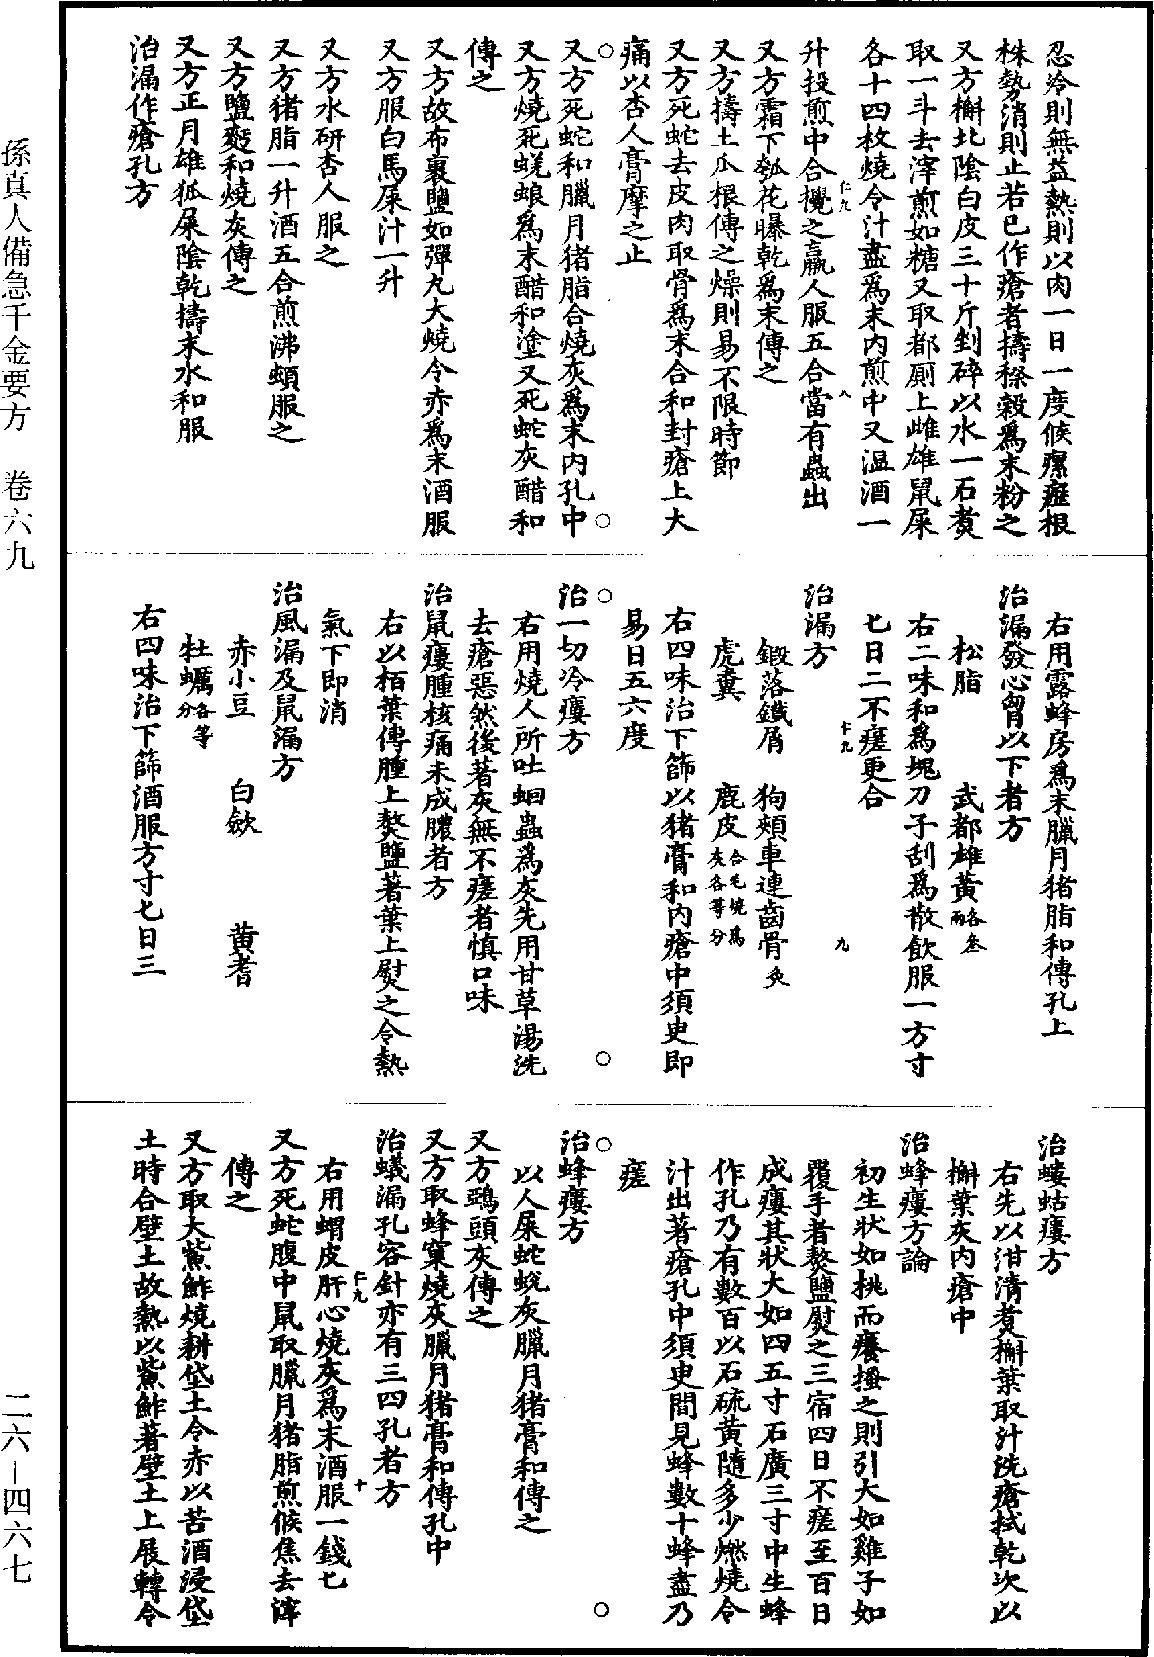 忍冷則無益熱則以肉一日一度候瘰癧根
株勢消則止若已作瘡者擣穄穀爲末粉之
又方槲北陰白皮三十斤剉碎以水一石煑
取一斗去滓煎如糖又取都厠上雌雄鼠屎
各十四枚燒令汁盡爲末內煎中又温酒一
升投煎中合攪之羸人服五合當有蟲出
又方霜下瓠花曝乾爲末傅之
又方擣土瓜根傅之燥則易不限時節
又方死蛇去皮肉取骨爲末合和封瘡上大
痛以杏人膏摩之止
又方死蛇和臘月猪脂合燒灰爲末內孔中
又方燒死蜣蜋爲末醋和塗又死蛇灰醋和
傅之
又方故布裹鹽如彈丸大燒令赤爲末酒服
又方服白馬屎汁一升
又方水研杏人服之
又方猪脂一升酒五合煎沸頓服之
又方鹽麪和燒灰傅之
又方正月雄狐屎陰乾擣末水和服
治漏作瘡孔方
右用露蜂房爲末臘月猪脂和傅孔上
治漏發心胷以下者方
松脂 武都雄黃各叁兩
右二味和爲塊刀子刮爲散飲服一方寸
七日二不瘥更合
治漏方
鍛落鐵屑 狗頰車連齒骨炙
虎糞 鹿皮合毛燒爲灰各等分
右四味治下篩以猪膏和內瘡中須臾即
易日五六度
治一切冷瘻方
右用燒人所吐蛔蟲爲灰先用甘草湯洗
去瘡惡然後著灰無不瘥者慎口味
治鼠瘻腫核痛未成膿者方
右以栢葉傅腫上熬鹽著葉上熨之令熱
氣下即消
治風漏及鼠漏方
赤小豆 白歛 黃耆
牡蠣各等分
右四味治下篩酒服方寸七日三
治螻蛄瘻方
右先以泔清煑槲葉取汁洗瘡拭乾次以
槲葉灰內瘡中
治蜂瘻方論
初生狀如桃而癢搔之則引大如雞子如
覆手者熬鹽熨之三宿四日不瘥至百日
成瘻其狀大如四五寸石廣三寸中生蜂
作孔乃有數百以石硫黃隨多少燃燒令
汁出著瘡孔中須臾間見蜂數十蜂盡乃
瘥
治蜂瘻方
以人屎蛇蛻灰臘月猪膏和傅之
又方鵄頭灰傅之
又方取蜂窠燒灰臘月猪膏和傅孔中
治蟻漏孔容針亦有三四孔者方
右用蝟皮肝心燒灰爲末酒服一錢七
又方死蛇腹中鼠取臘月猪脂煎候焦去滓
傅之
又方取大鮆鮓燒耕垡土令赤以苦酒浸垡
土時合壁土故熱以鮆鮓著壁土上展轉令
孫真人備急千金要方 卷六九
二六—四六七